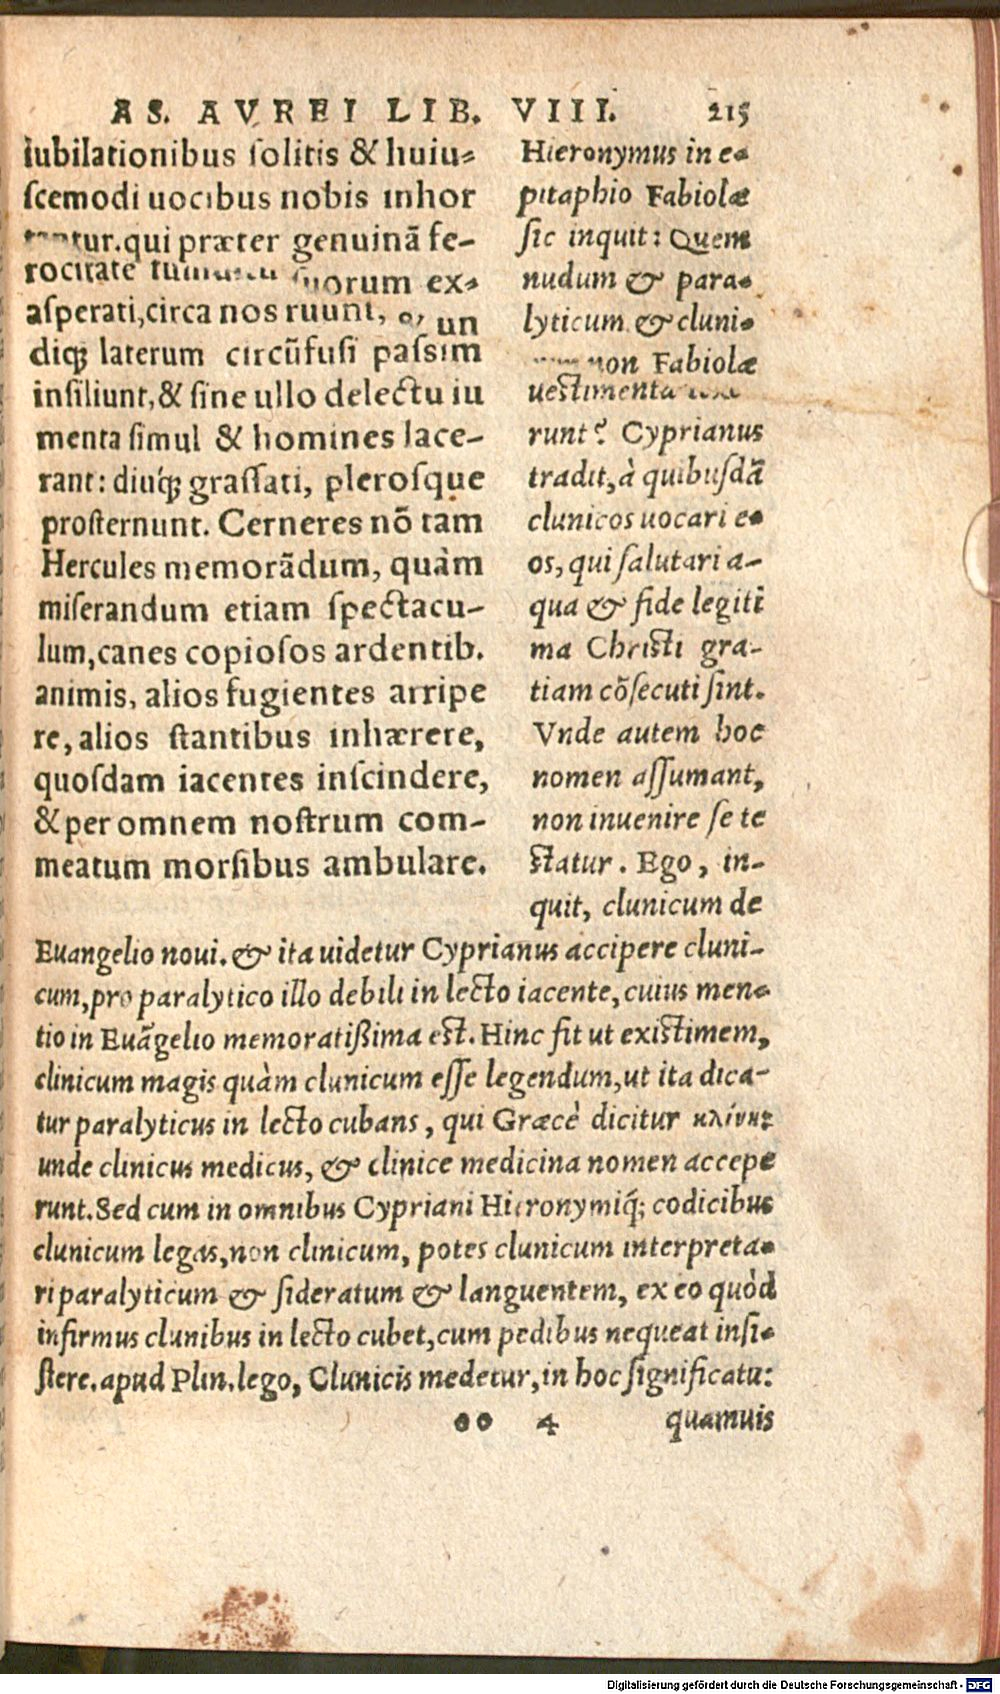 AS. AVREI LIB. VIII. 215
iubilationibus solitis & huiu-
scemodi uocibus nobis inhor
qui præter genuinã fe-
rocitate suorum ex-
asperati, circa nos ruunt, un
diq; laterum circũfusi passim
insiliunt, & sine ullo delectu iu
menta simul & homines lace-
rant: diuq́; grassati, plerosque
prosternunt. Cerneres nõ tam
Hercules memorãdum, quàm
miserandum etiam spectacu-
lum, canes copiosos ardentib.
animis, alios fugientes arripe
re, alios stantibus inhærere,
quosdam iacentes inscindere,
& per omnem nostrum com-
meatum morsibus ambulare.
Hieronymus in e-
pitaphio Fabiolæ
sic inquit: Quem
nudum & para-
lyticum & cluni-
non Fabiolæ
uestimenta
runt? Cyprianus
tradit, à quibusdã
clunicos uocari e-
os, qui salutari a-
qua & fide legiti
ma Christi gra-
tiam cõsecuti sint.
Vnde autem hoc
nomen assumant,
non inuenire se te
statur. Ego, in-
quit, clunicum de
Euangelio noui. & ita uidetur Cyprianus accipere cluni-
cum, pro paralytico illo debili in lecto iacente, cuius men-
tio in Euãgelio memoratißima est. Hinc fit ut existimem,
clinicum magis quàm clunicum esse legendum, ut ita dica-
tur paralyticus in lecto cubans, qui Græcè dicitur κλίνης
unde clinicus medicus, & clinice medicina nomen accepe
runt. Sed cum in omnibus Cypriani Hieronymiq́; codicibus
clunicum legas, non clinicum, potes clunicum interpreta-
ri paralyticum & sideratum & languentem, ex eo quòd
infirmus clunibus in lecto cubet, cum pedibus nequeat insi-
stere. apud Plin. lego, Clunicis medetur, in hoc significatu:
oo 4 quamuis
Digitalisierung gefördert durch die Deutsche Forschungsgemeinschaft - DFG